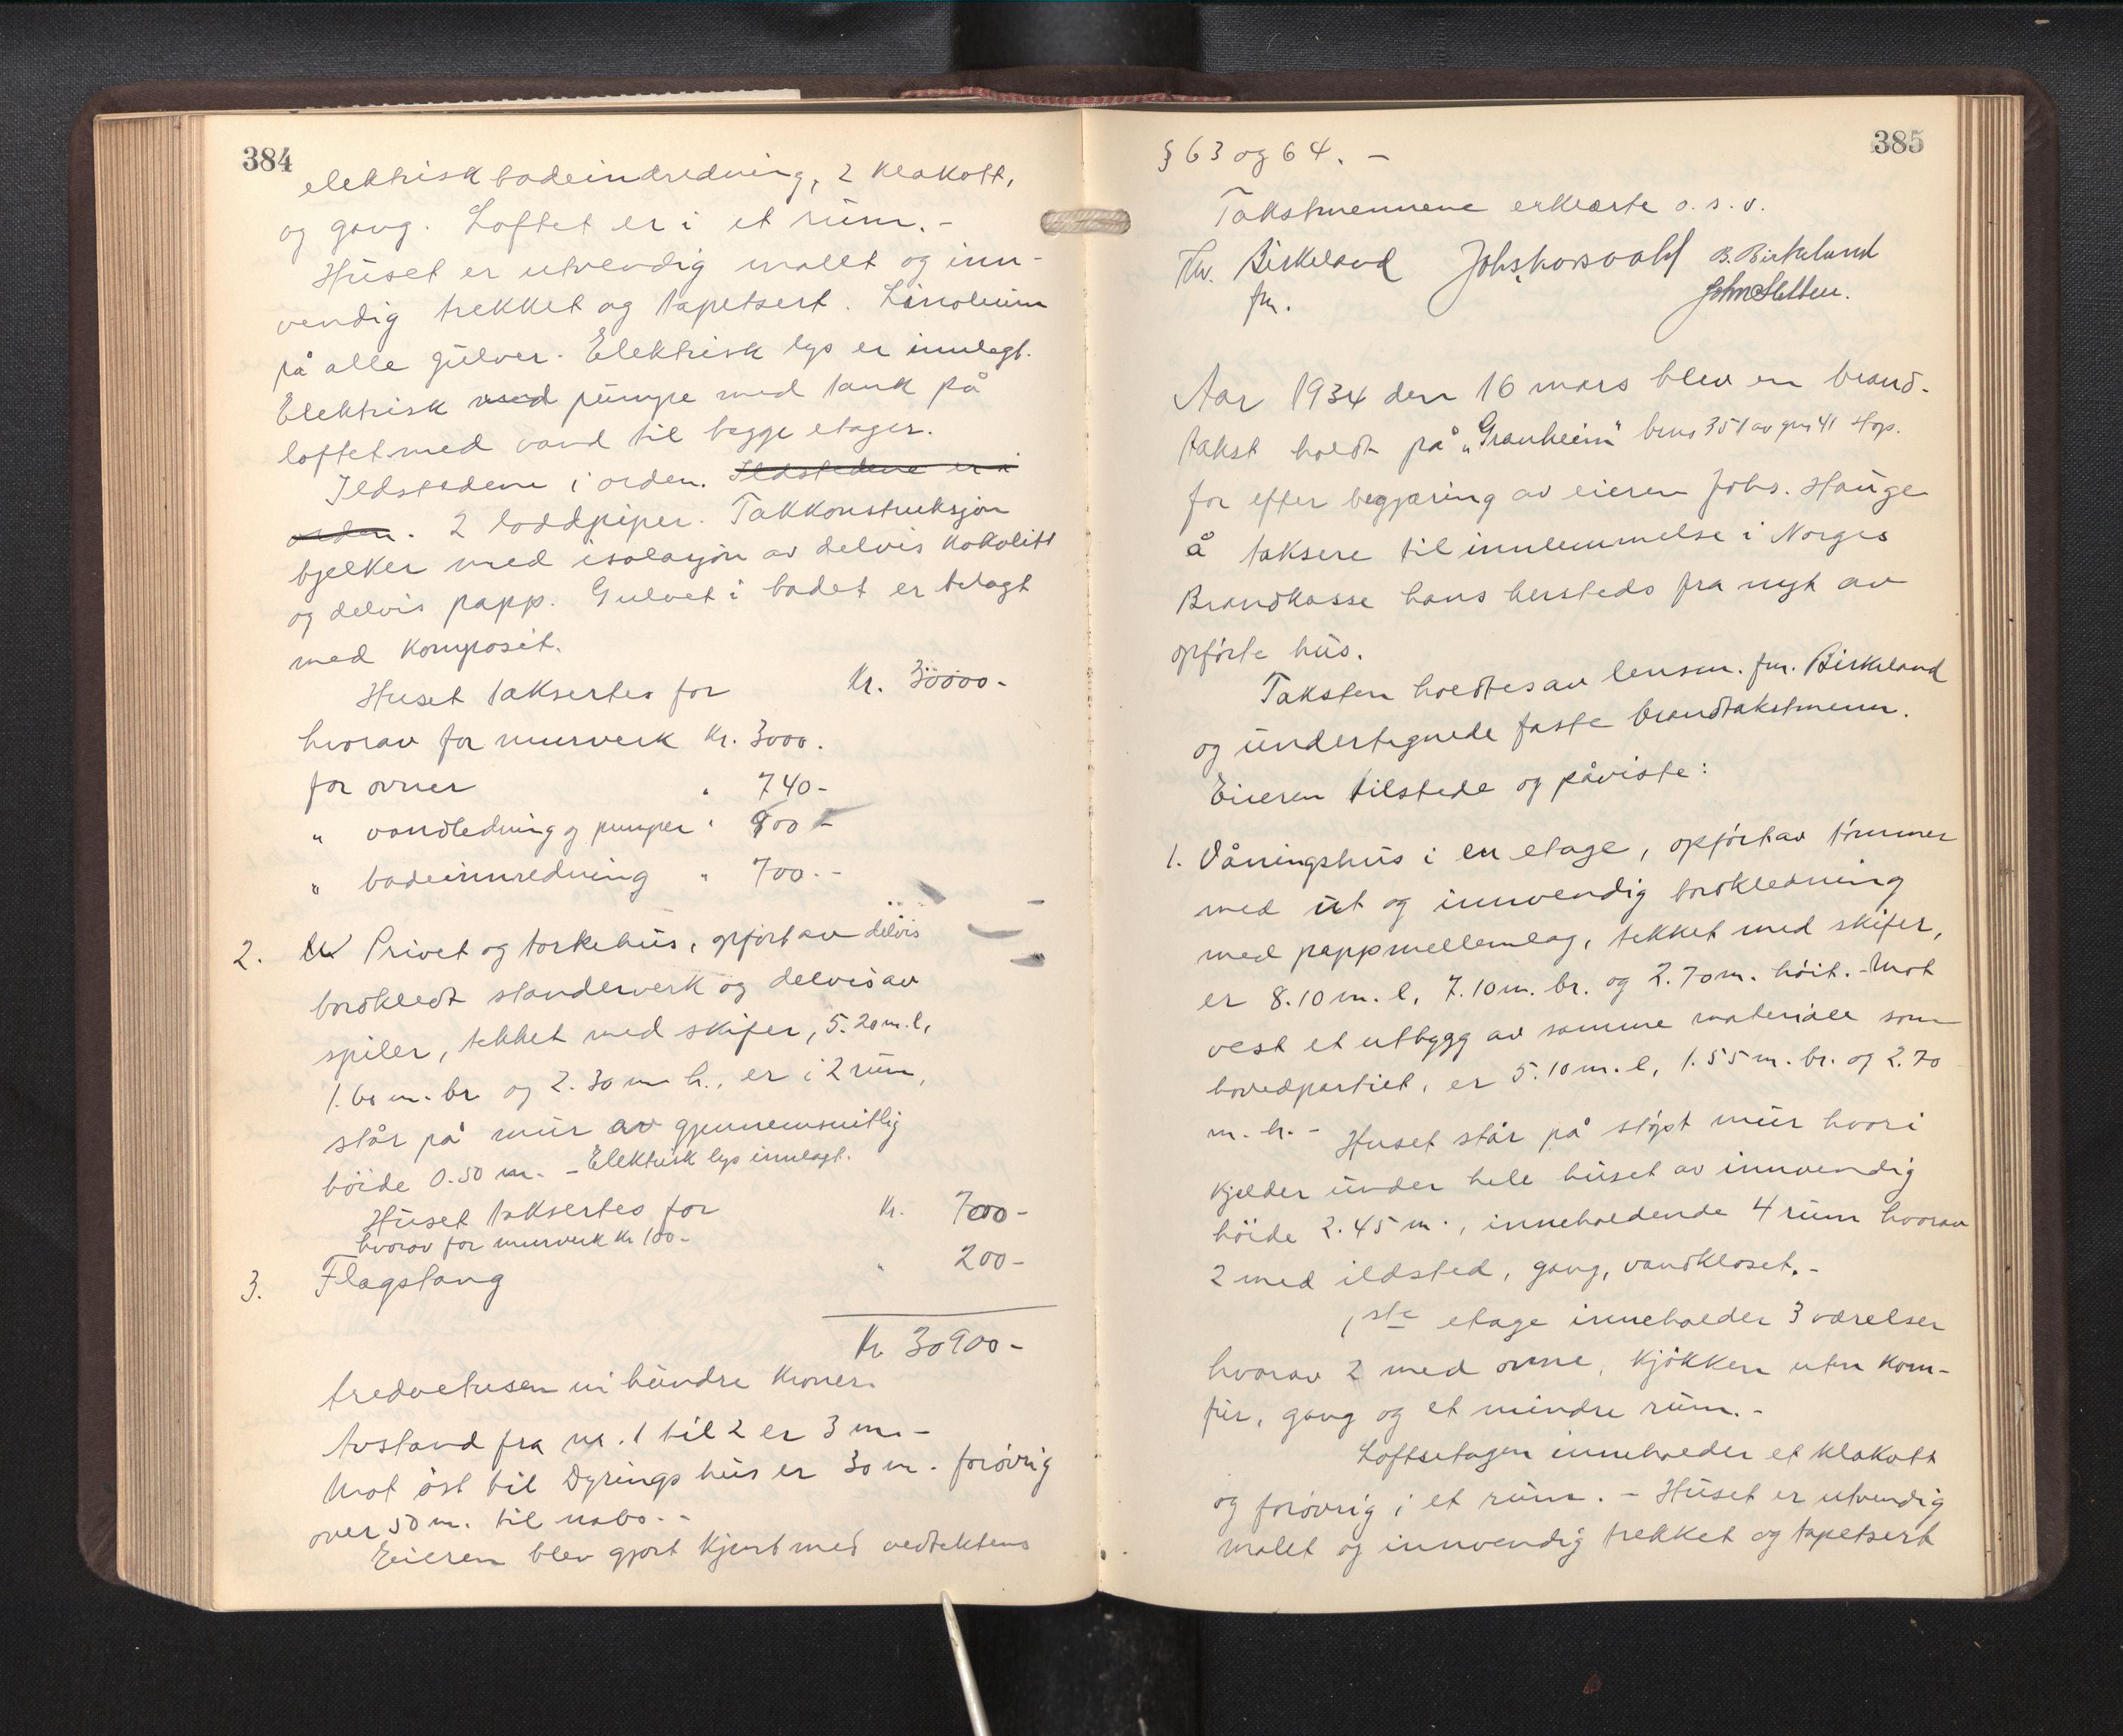 384
elektrisk badeindredning, 2 klakott,
og gang. Loftet er i et rum. -
Huset er utvendig malet og inn-
vendig trekket og tapetsert. Linoleum
på alle gulver. Elektrisk lys er innlagt.
Elektrisk pumpe med tank på
loftet med vand til begge etager.
Ildstedene i orden. Ildstedene er i
orden. 2 loddpiper. Takkonstruksjon
bjelker med isolasjon av delvis kokolitt
og delvis papp. Gulvet i badet er belagt
med komposit.
Huset taksertes for Kr. 30000-
hvorav for murverk Kr. 3000.
for ovner " 740-
" vandledning og pumper " 900-
" badeinnredning " 700.-
2. Privet og torkehus, opført av delvis
bordkledt standerverk og delvis av
spiler, tekket med skifer, 5.20 m. l,
1.60 m. br og 2.30 m h., er i 2 rum,
står på mur av gjennemsnitlig
höide 0.50 m. - Elektrisk lys innlagt.
Huset taksertes for Kr. 700-
hvorav for murverk Kr 100-
3. Flagstang " 200-
Kr 30900-
tredvetusen ni hundre kroner.
Avstand fra nr. 1 til 2 er 3 m. -
Mot öst til Dyrings hus er 30 m. forøvrig
over 50 m. til nabo. -
Eieren blev gjort kjent med vedtektens
385
§ 63 og 64. -
Takstmennene erklærte o. s. v.
Thv. Birkeland Johs Korsvold B. Birkeland
fm. John Sletten.
Aar 1934 den 16 mars blev en brand-
takst holdt på "Granheim" bnr 351 av gnr 41 Hop.
for efter begjæring av eieren Johs. Hauge
å taksere til innlemmelse i Norges
Brandkasse hans hersteds fra nyt av
opførte hus.
Taksten holdtes av lensm. fm. Birkeland
og undertegnede faste brandtakstmenn.
Eieren tilstede og påviste:
1. Våningshus i en etage, opført av tømmer
med ut og innvendig bordkledning
med pappmellemlag, tekket med skifer,
er 8.10 m. l, 7.10 m. br. og 2.70 m. höit. - Mot
vest et utbygg av samme materiale som
hovedpartiet, er 5.10 m. l, 1.55 m. br. og 2.70
m. h. - Huset står på støpt mur hvori
kjelder under hele huset av innvendig
höide 2.45 m., inneholdende 4 rum hvorav
2 med ildsted, gang, vandkloset. -
1ste etage inneholder 3 værelser
hvorav 2 med ovne, kjøkken uten kom-
fur, gang og et mindre rum. -
Loftsetagen inneholder et klakott
og forøvrig i et rum. - Huset er utvendig
malet og innvendig trekket og tapetsert